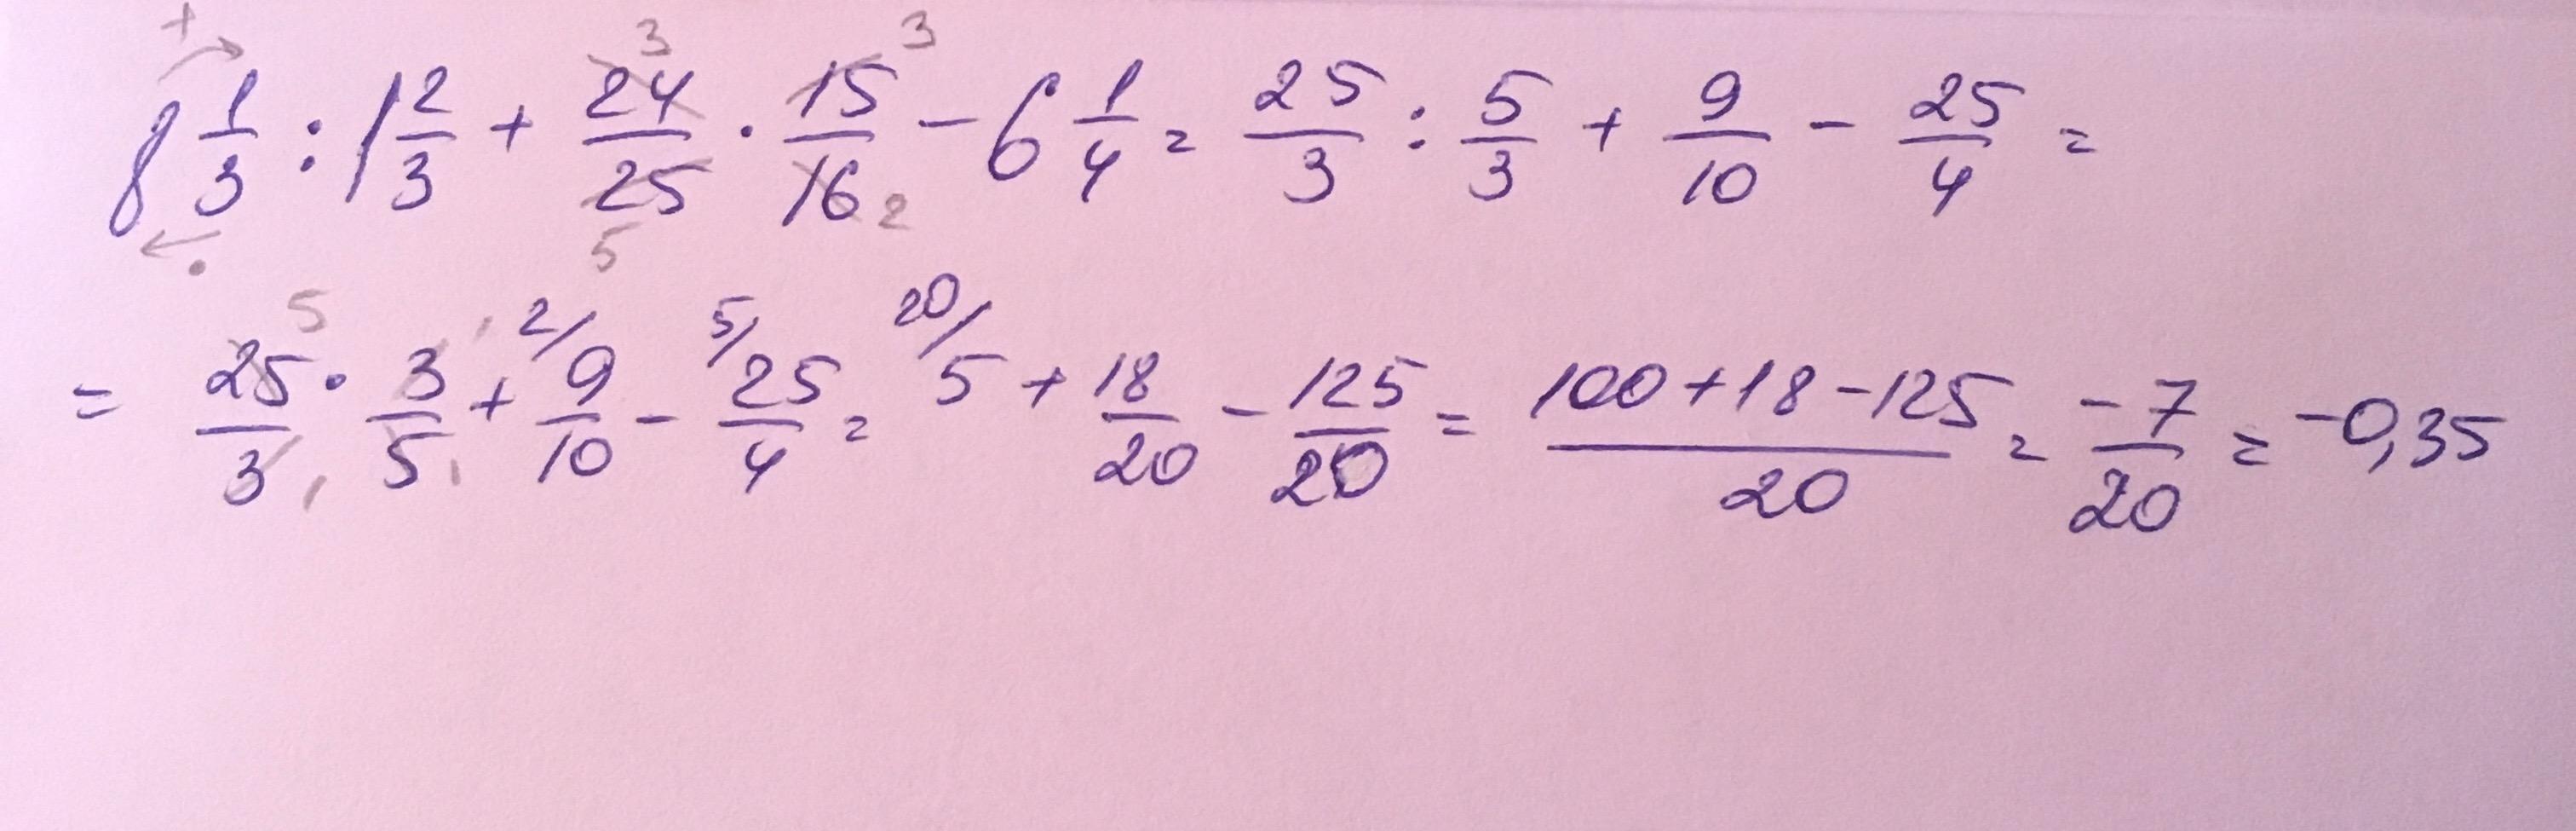 8 1/3 : 1 2/3 + 24/25 · 15/16 - 6 1/4 = 25/3 : 5/3 + 9/10 - 25/4 =
= 25/3 · 3/5 + 9/10 - 25/4 = 5 + 18/20 - 125/20 = (100+18-125)/20 = -7/20 = -0,35